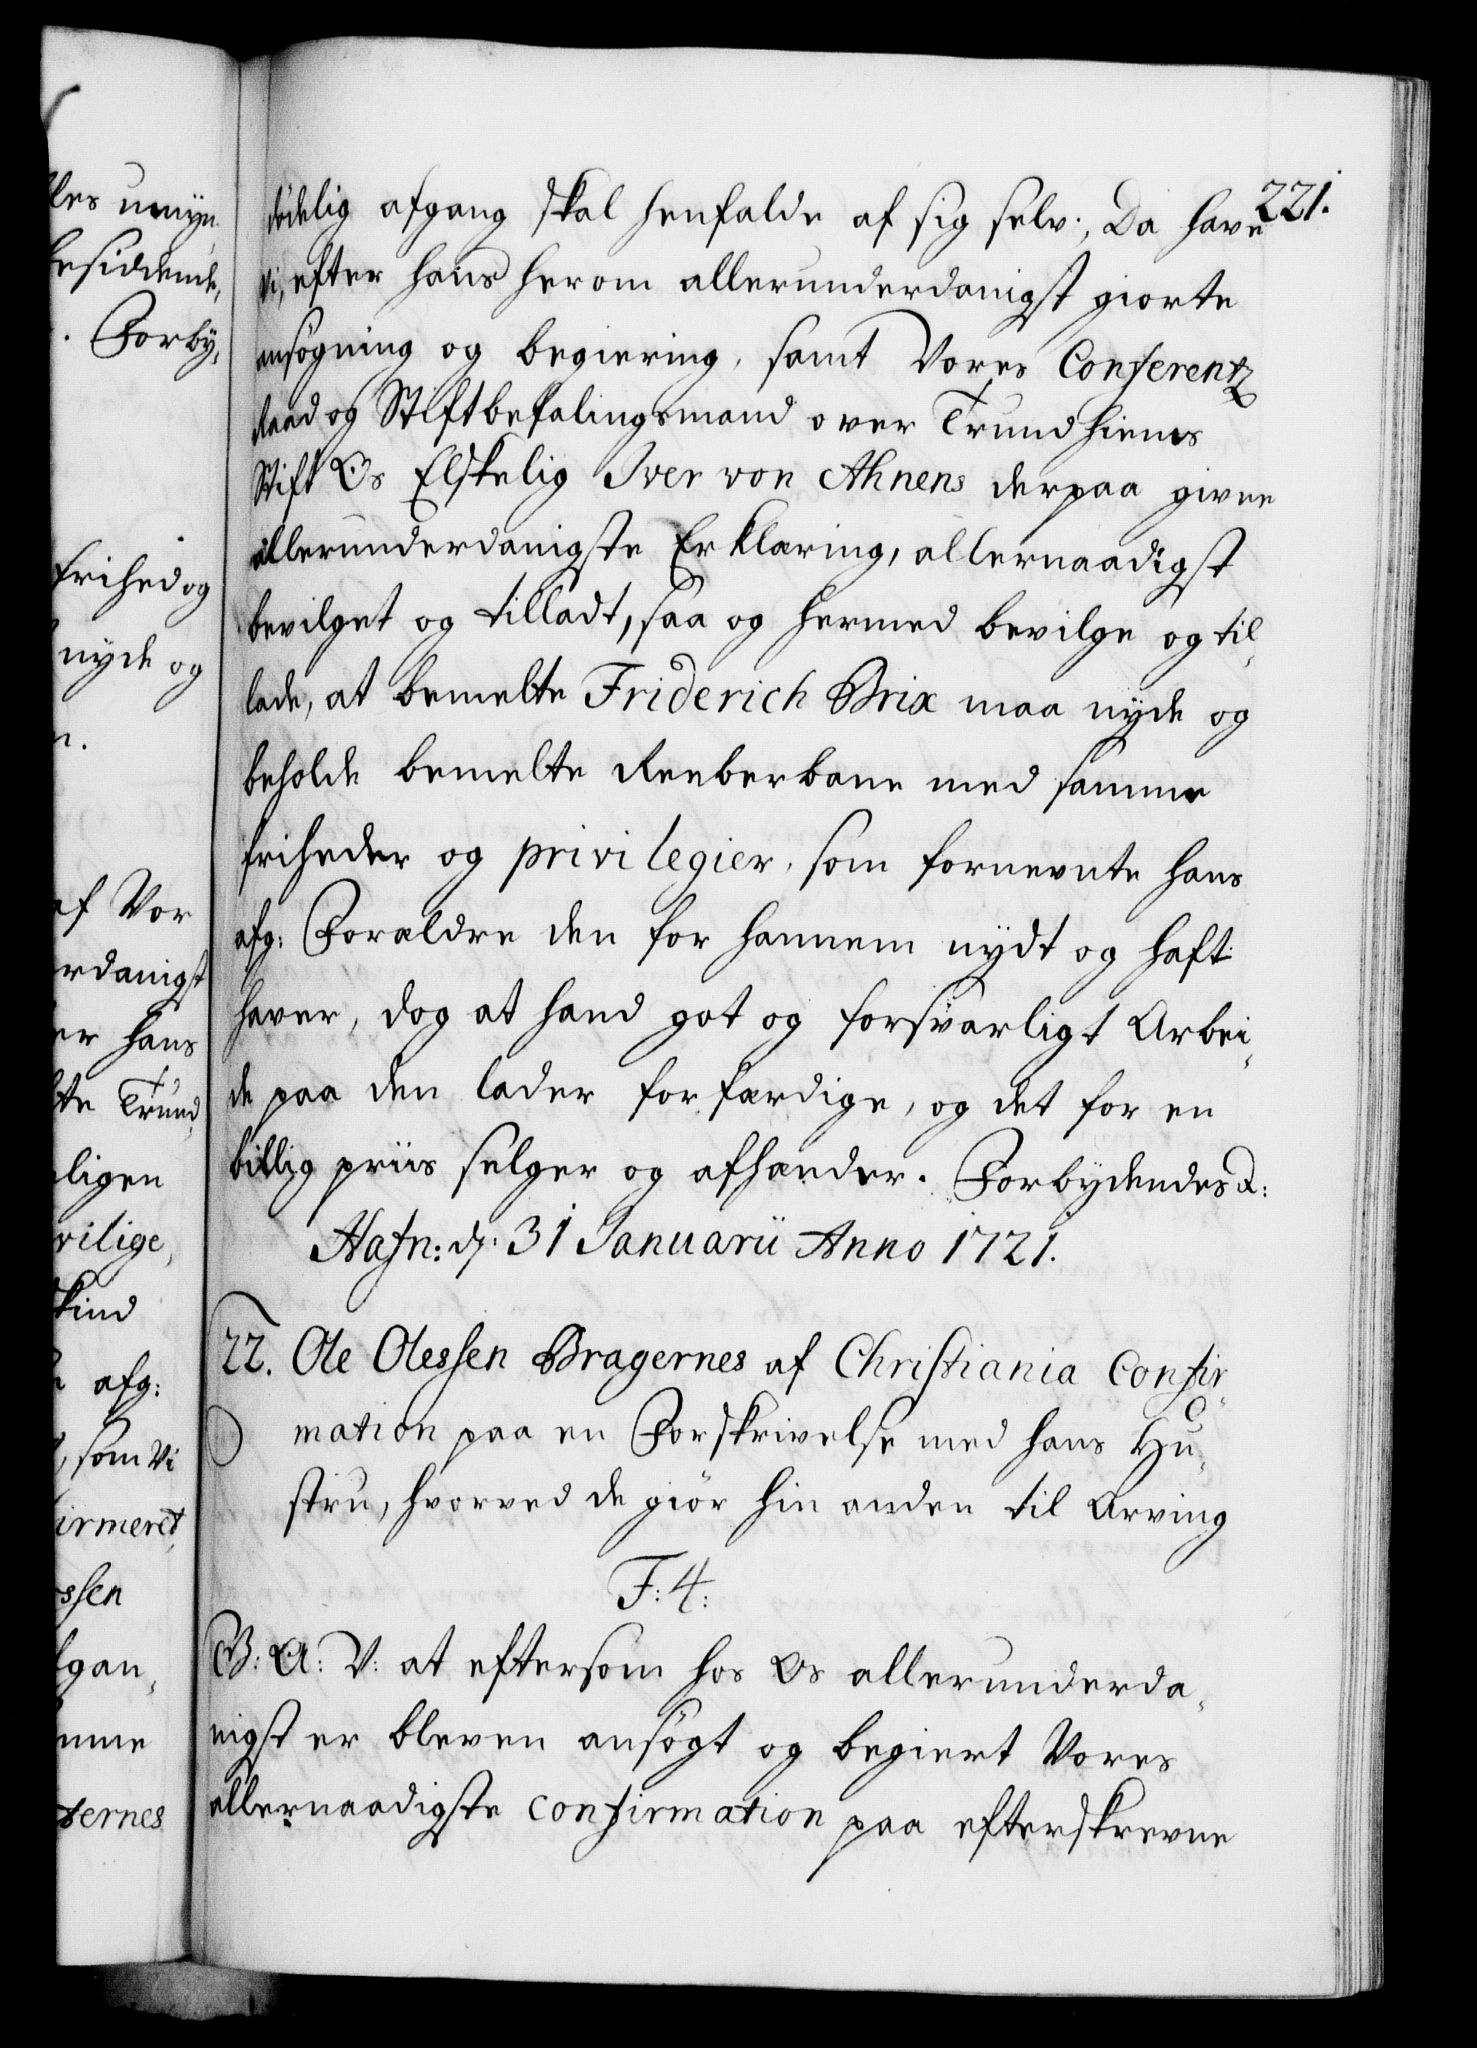 221.
dödelig afgang skal henfalde af sig selv; Da have
Vi, efter hans herom allerunderdanigst giorte
ansögning og begiering, samt Vores Conferentz
Raad og Stiftbefalingsmand over Trundhiems
Stift Os Elskelig Iver von Ahnens derpaa givne
allerunderdanigste Erklæring, allernaadigst
bevilget og tilladt, saa og hermed bevilge og til-
lade, at bemelte Friderich Brix maa nyde og
beholde bemelte Reeberbane med samme
friheder og privilegier, som fornevnte hans
afg: Forældre den for hannem nydt og haft
haver, dog at hand got og forsvarligt Arbei-
de paa den lader forfærdige, og det for en
billig priis selger og afhænder. Forbydendes &:
Hafn: d: 31 Januarii Anno 1721.
22. Ole Olessen Bragernes af Christiania Confir-
mation paa en Forskrivelse med hans Hu-
stru, hvorved de giör hin anden til Arving
F: 4:
G: A: V: at eftersom hos Os allerunderda-
nigst er bleven ansögt og begiert Vores
allernaadigste confirmation paa efterskrevne
les umyn-
besiddende,
. Forby-
frihed og
nyde og
n.
af Vor
rdanigst
er hans
te Trund-
ligen
vilige,
kind
afg:
, som Vi
irmeret,
ssen
fgan-
mme
ternes